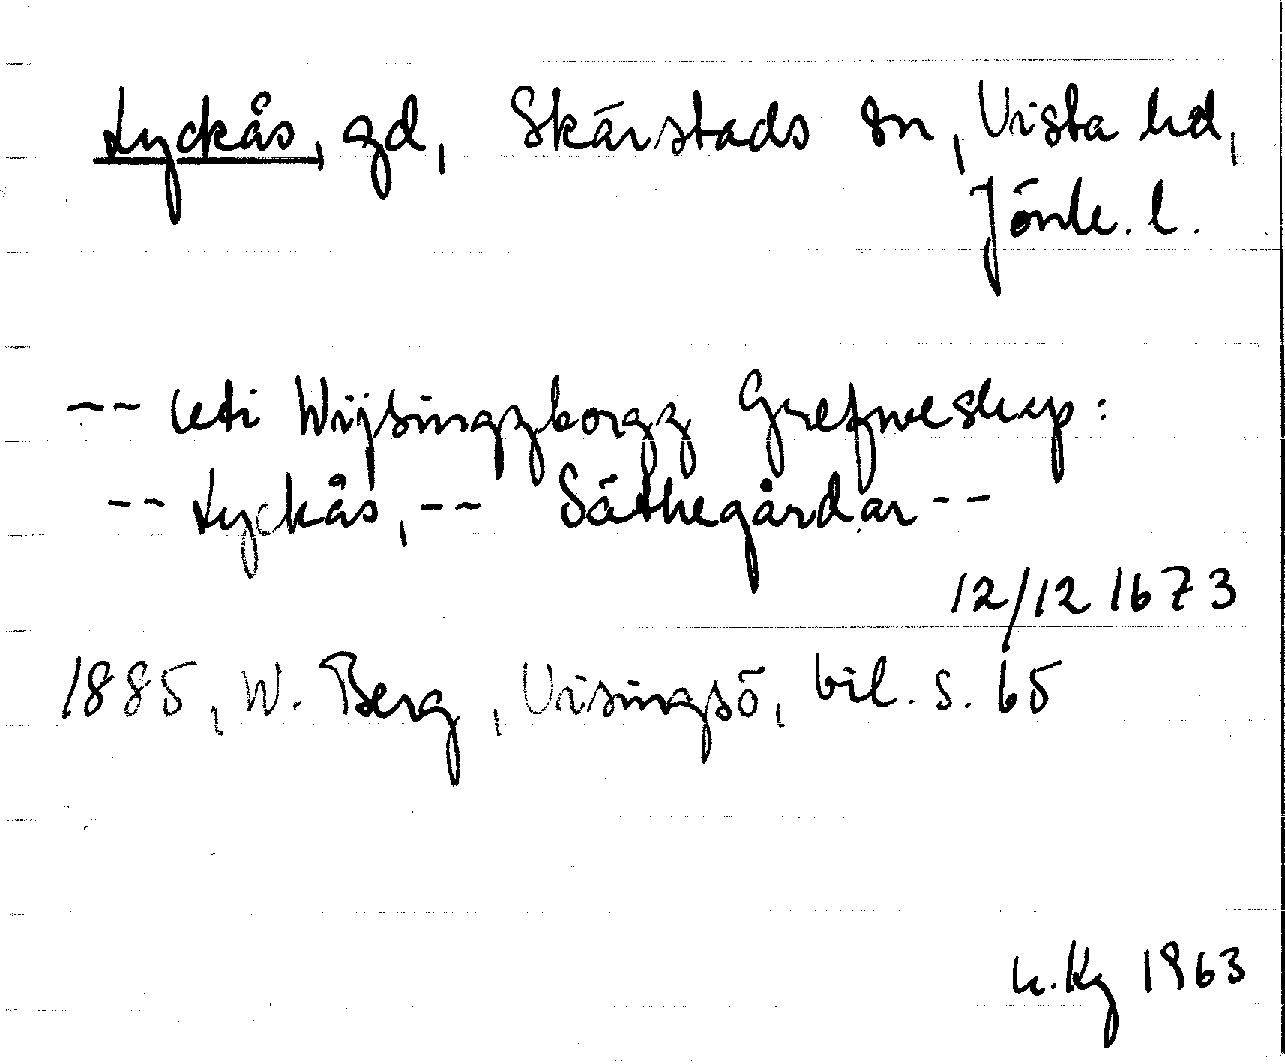 Lyckås, gd, Skärstads sn, Vista hd,
Jönk. l.
-- Uti Wijsingzborgz Grefweskap:
-- Lyckås, -- Säthegårdar --
12/12 1673
1885, W. Berg, Visingsö, bil. s. 65
1963